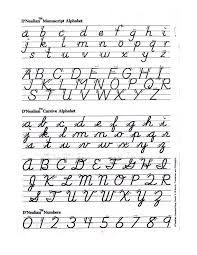 D'Nealian™ Manuscript Alphabet
a b c d e f g h i
j k l m n o p q r
s t u v w x y z
A B C D E F G H I
J K L M N O P Q R
S T U V W X Y Z
D'Nealian™ Cursive Alphabet
a b c d e f g h i
j k l m n o p q r
s t u v w x y z
A B C D E F G H I
J K L M N O P Q R
S T U V W X Y Z
D'Nealian™ Numbers
0 1 2 3 4 5 6 7 8 9